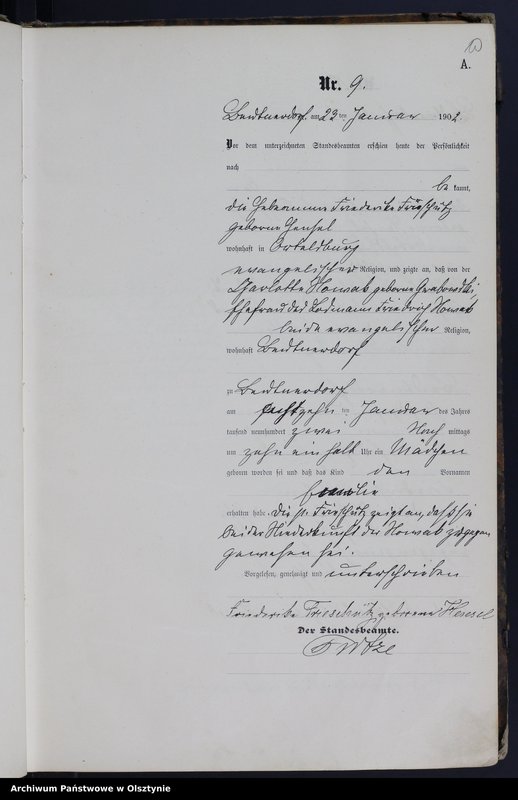 10
A.
Nr. 9.
Beutnerdorf am 23 ten Januar 1902
Vor dem unterzeichneten Standesbeamten erschien heute der Persönlichkeit
nach
be kannt,
die Hebeamme Friederike Frieschütz
geborne Hensel
wohnhaft in Ortelsburg
evangelischer Religion, und zeigte an, daß von der
Charlotte Nowak geborne Grabowski,
Ehefrau des Losmanns Friedrich Nowak
beide evangelischer Religion,
wohnhaft Beutnerdorf
zu Beutnerdorf
am achtzehn ten Januar des Jahres
tausend neunhundert zwei Nach mittags
um zehn einhalb Uhr ein Mädchen
geboren worden sei und daß das Kind den Vornamen
Emilie
erhalten habe. Die p. Frieschütz zeigt an, daß sie
bei der Niederkunft der Nowak zugegen
gewesen sei.
Vorgelesen, genehmigt und unterschrieben
Friederike Frieschütz geborene Hensel
Der Standesbeamte.
Archiwum Państwowe w Olsztynie